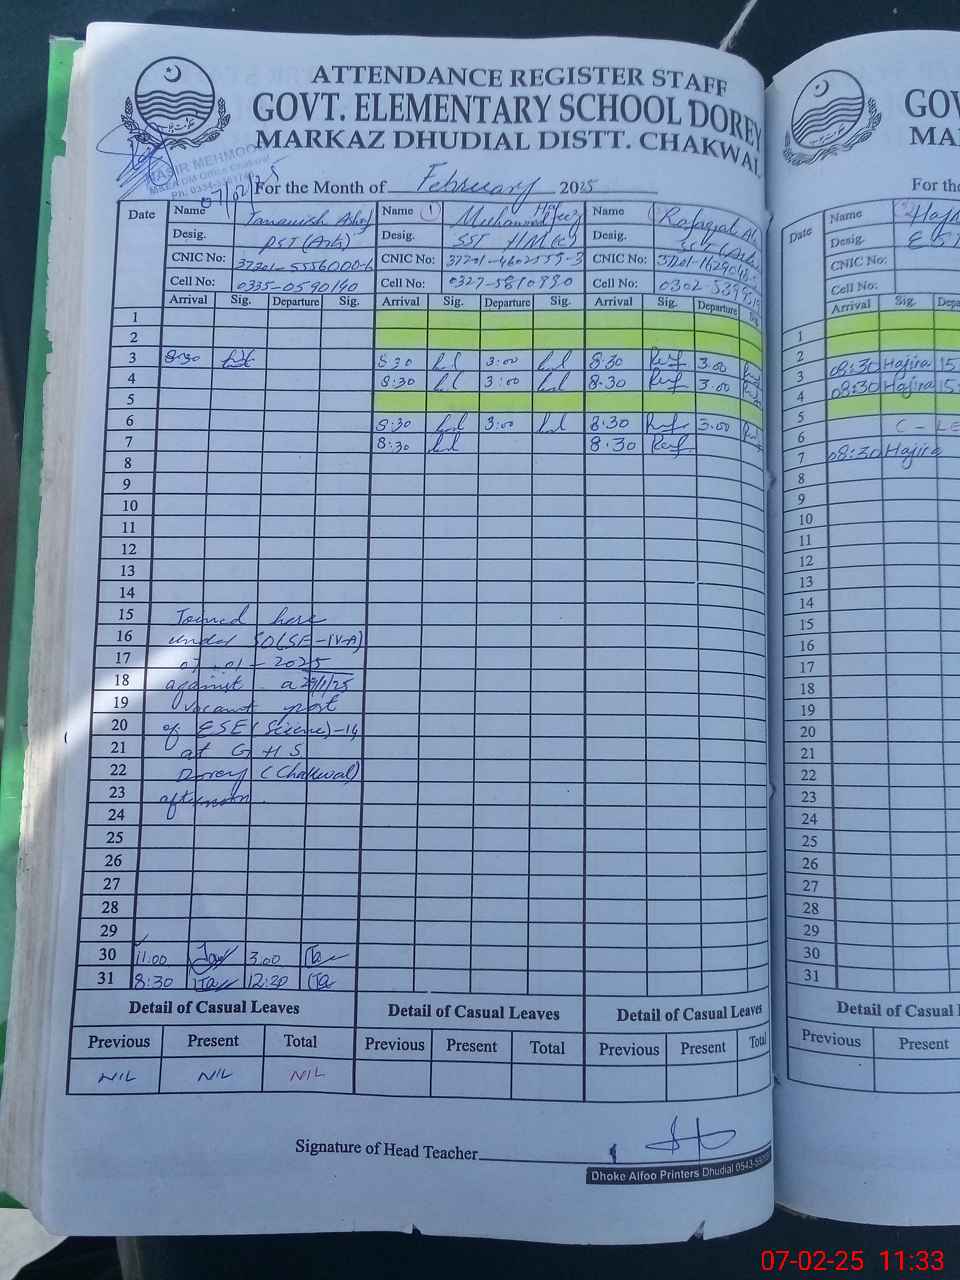 ATTENDANCE REGISTER STAFF
GOVT. ELEMENTARY SCHOOL DOREY
MARKAZ DHUDIAL DISTT. CHAKWAL
07/02/25
For the Month of February 2025
Date
Name
Desig. PST (Arts)
CNIC No:
Cell No: 0335-0590190
Name 1 Hafeez
Desig. SST H/M
CNIC No: 37201-4602559-3
Cell No: 0327-5810990
Name
Desig.
CNIC No:
Cell No: 0302-5399
Arrival Sig. Departure Sig. Arrival Sig. Departure Sig. Arrival Sig. Departure Sig.
1
2
3 8:30 8:30 3:00 8:30 3.00
4 8:30 3:00 8.30 3.00
5
6 8:30 3:00 8.30 3.00
7 8:30 8.30
8
9
10
11
12
13
14
15 Joined here
16 under SO(SE-IV-A)
17 07-01-2025
18 against a 29/1/25
19 vacant post
20 of ESE (Science)-14
21 at GHS
22 Dorey (Chakwal)
23 afternoon.
24
25
26
27
28
29
30 11:00 3.00
31 8:30 12:30
Detail of Casual Leaves Detail of Casual Leaves Detail of Casual Leaves
Previous Present Total Previous Present Total Previous Present Total
NIL NIL NIL
Signature of Head Teacher
Dhoke Alfoo Printers Dhudial
GOV
MA
For the
Date
Name
Desig.
CNIC No:
Cell No:
Arrival Sig.
1
2
3 08:30 Hajira 15
4 08:30 Hajira 15
5
6 C - LE
7 08:30 Hajira
8
9
10
11
12
13
14
15
16
17
18
19
20
21
22
23
24
25
26
27
28
29
30
31
Detail of
Previous Present
07-02-25 11:33